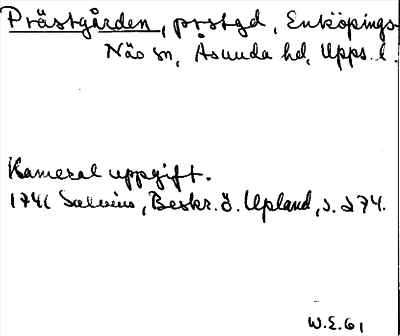 Prästgården, prstgd, Enköpings-
Näs sn, Åsunda hd, Upps. l.
Kameral uppgift.
1741 Salvius, Beskr. ö. Upland, s. 274.
W.E. 61